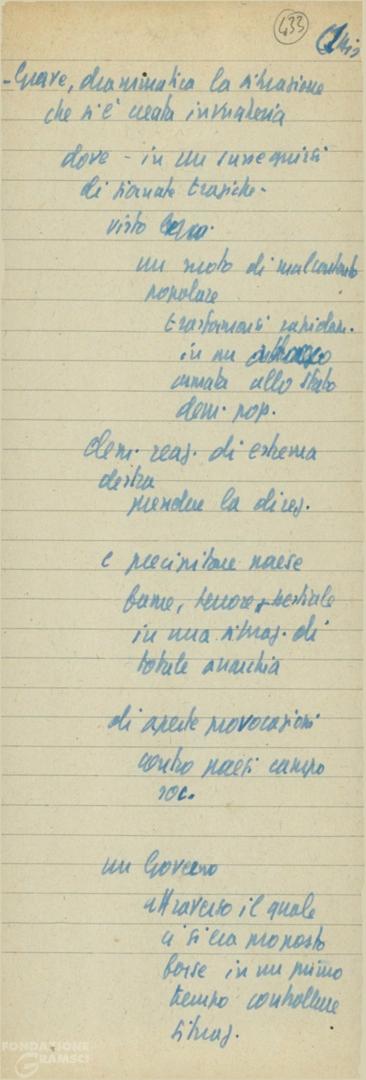 433
- Grave, drammatica la situazione
che si è creata in Ungheria
dove - in un susseguirsi
di giornate tragiche -
visto
un moto di malcontento
popolare
trasformarsi rapidam.
in un attacco
armata allo stato
dem. pop.
elem. reaz. di estrema
destra
prendere la direz.
e precipitare paese
fame, terrore bestiale
in una situaz. di
totale anarchia
di aperte provocazioni
contro paesi campo
soc.
un Governo
attraverso il quale
ci si era proposto
forse in un primo
tempo controllare
situaz.
FONDAZIONE
GRAMSCI